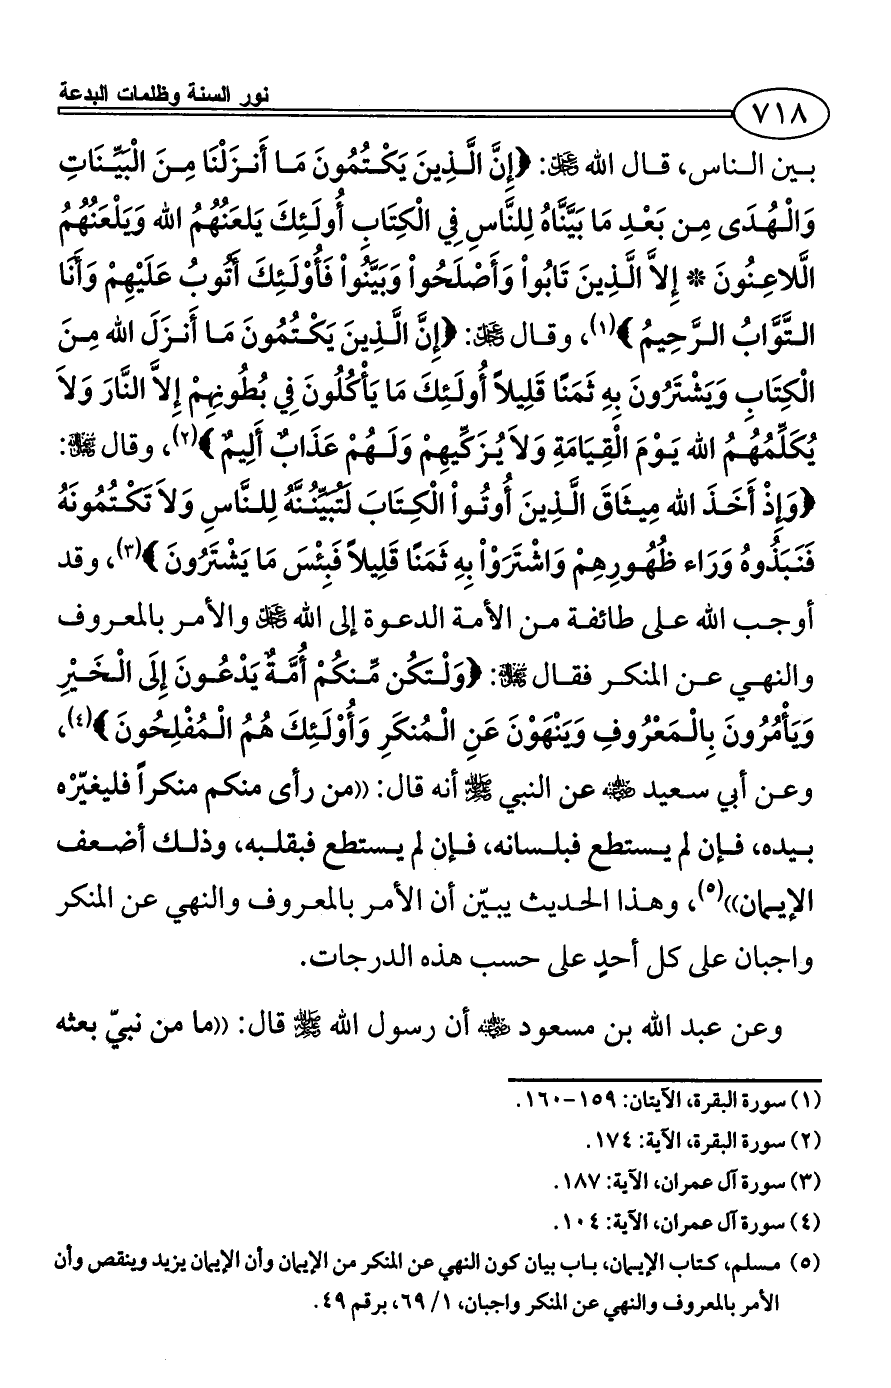 نور السنة وظلمات البدعة
٧١٨
بين الناس، قال الله ﷻ: ﴿إِنَّ الَّذِينَ يَكْتُمُونَ مَا أَنزَلْنَا مِنَ الْبَيِّنَاتِ
وَالْهُدَى مِن بَعْدِ مَا بَيَّنَّاهُ لِلنَّاسِ فِي الْكِتَابِ أُولَئِكَ يَلعَنُهُمُ الله وَيَلْعَنُهُمُ
اللَّاعِنُونَ * إِلاَّ الَّذِينَ تَابُواْ وَأَصْلَحُواْ وَبَيَّنُواْ فَأُوْلَئِكَ أَتُوبُ عَلَيْهِمْ وَأَنَا
التَّوَّابُ الرَّحِيمُ﴾(١)، وقال ﷻ: ﴿إِنَّ الَّذِينَ يَكْتُمُونَ مَا أَنزَلَ الله مِنَ
الْكِتَابِ وَيَشْتَرُونَ بِهِ ثَمَنًا قَلِيلاً أُولَئِكَ مَا يَأْكُلُونَ فِي بُطُونِهِمْ إِلاَّ النَّارَ وَلاَ
يُكَلِّمُهُمُ الله يَوْمَ الْقِيَامَةِ وَلاَ يُزَكِّيهِمْ وَلَهُمْ عَذَابٌ أَلِيمٌ﴾(٢)، وقال ﷻ:
﴿وَإِذْ أَخَذَ الله مِيثَاقَ الَّذِينَ أُوتُواْ الْكِتَابَ لَتُبَيِّنُنَّهُ لِلنَّاسِ وَلاَ تَكْتُمُونَهُ
فَنَبَذُوهُ وَرَاء ظُهُورِهِمْ وَاشْتَرَوْاْ بِهِ ثَمَنًا قَلِيلاً فَبِئْسَ مَا يَشْتَرُونَ﴾(٣)، وقد
أوجب الله على طائفة من الأمة الدعوة إلى الله ﷻ والأمر بالمعروف
والنهي عن المنكر فقال ﷻ: ﴿وَلْتَكُن مِّنكُمْ أُمَّةٌ يَدْعُونَ إِلَى الْخَيْرِ
وَيَأْمُرُونَ بِالْمَعْرُوفِ وَيَنْهَوْنَ عَنِ الْمُنكَرِ وَأُوْلَئِكَ هُمُ الْمُفْلِحُونَ﴾(٤)،
وعن أبي سعيد ﵁ عن النبي ﷺ أنه قال: ((من رأى منكم منكراً فليغيّرْه
بيده، فإن لم يستطع فبلسانه، فإن لم يستطع فبقلبه، وذلك أضعف
الإيمان))(٥)، وهذا الحديث يبيّن أن الأمر بالمعروف والنهي عن المنكر
واجبان على كل أحدٍ على حسب هذه الدرجات.
وعن عبد الله بن مسعود ﵁ أن رسول الله ﷺ قال: ((ما من نبيّ بعثه
(١) سورة البقرة، الآيتان: ١٥٩-١٦٠.
(٢) سورة البقرة، الآية: ١٧٤.
(٣) سورة آل عمران، الآية: ١٨٧.
(٤) سورة آل عمران، الآية: ١٠٤.
(٥) مسلم، كتاب الإيمان، باب بيان كون النهي عن المنكر من الإيمان وأن الإيمان يزيد وينقص وأن
الأمر بالمعروف والنهي عن المنكر واجبان، ١/ ٦٩، برقم ٤٩.